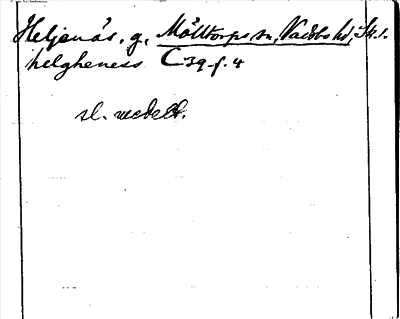 Heljenäs, g, Mölltorps sn, Vadsbo hd, Sk.l.
helgheness C 39 f. 4
sl. medelt.